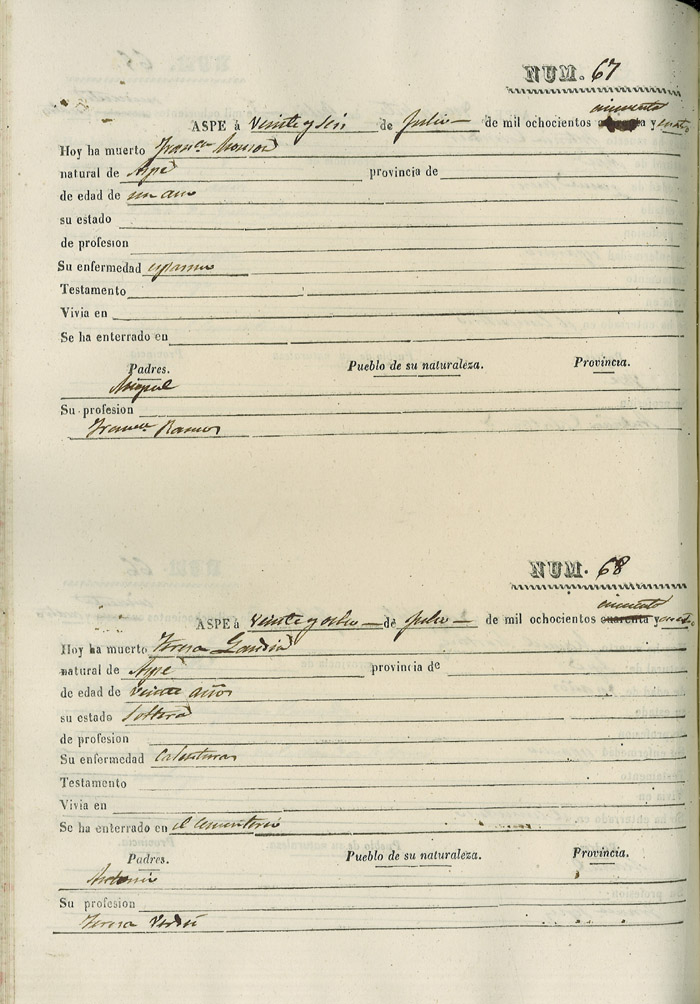 NUM. 67
ASPE á Veinte y seis de Julio de mil ochocientos cincuenta y cuatro
Hoy ha muerto Franca. Monzó
natural de Aspe provincia de
de edad de un año
su estado
de profesion
Su enfermedad espasmo
Testamento
Vivia en
Se ha enterrado en
Padres. Pueblo de su naturaleza. Provincia.
Miguel
Su profesion
Franca. Ramos
NUM. 68
ASPE á Veinte y ocho de Julio de mil ochocientos cuarenta cincuenta y cuatro
Hoy ha muerto Teresa Gandia
natural de Aspe provincia de
de edad de veinte años
su estado Soltera
de profesion
Su enfermedad Calenturas
Testamento
Vivia en
Se ha enterrado en el Cementerio
Padres. Pueblo de su naturaleza. Provincia.
Antonio
Su profesion
Teresa Verdú